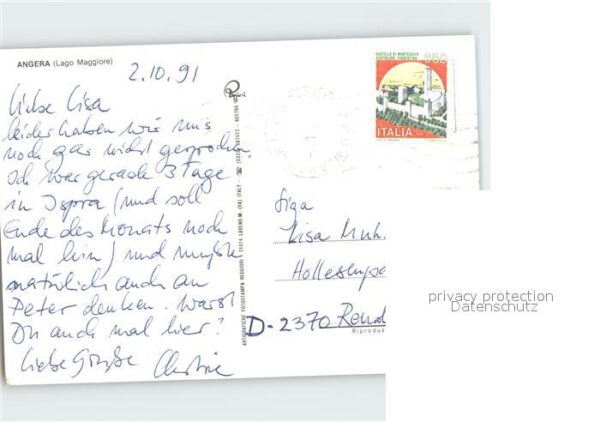 ANGERA (Lago Maggiore)
2.10.91
Liebe Lisa
leider haben wir uns
noch gar nicht gesprochen.
Ich war gerade 3 Tage
in Ispra (und soll
Ende des Monats noch
mal hin) und mußte
natürlich auch an
Peter denken. Warst
Du auch mal hier?
Liebe Grüße Christine
CASTELLO DI MONTECCHIO
CASTIGLION FIORENTINO
650
ITALIA
Lisa Muh
D-2370 Rends
Riproduz
privacy protection
Datenschutz